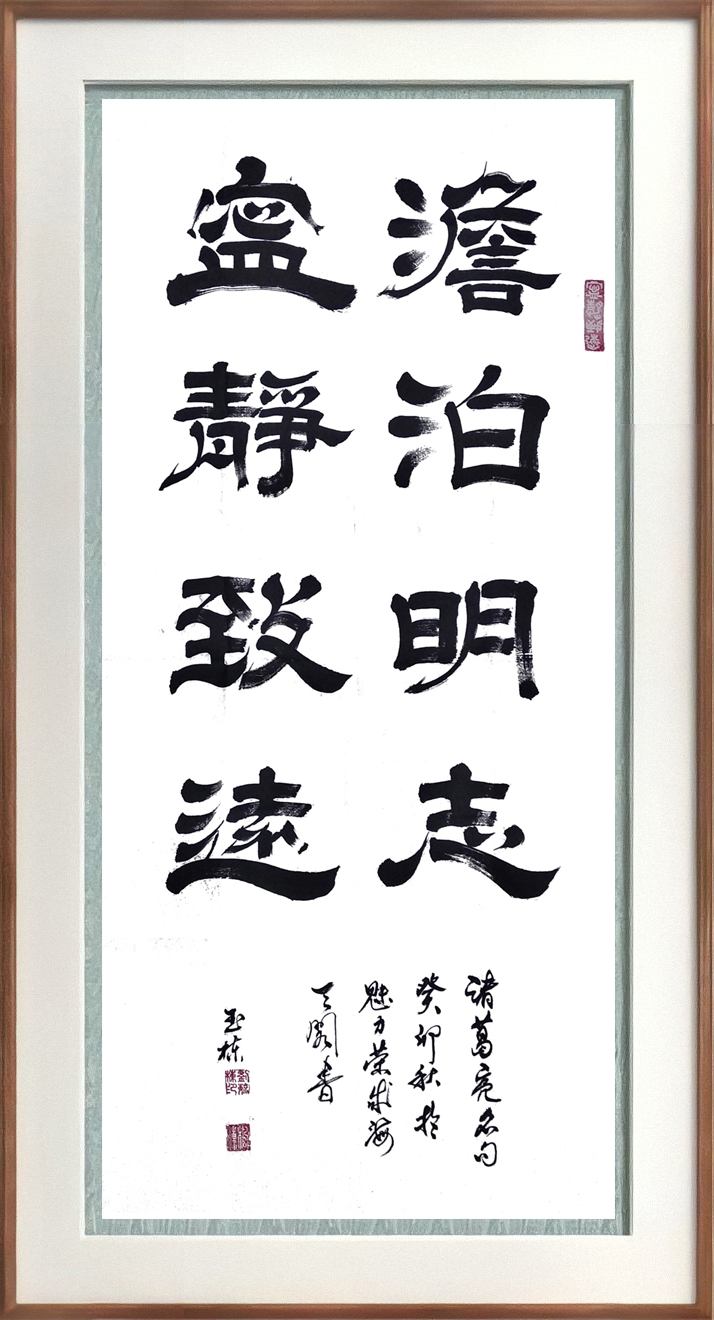 澹泊明志
寍靜致遠
諸葛亮名句
癸卯秋於
魅力荣成海
天阁書
玉栋